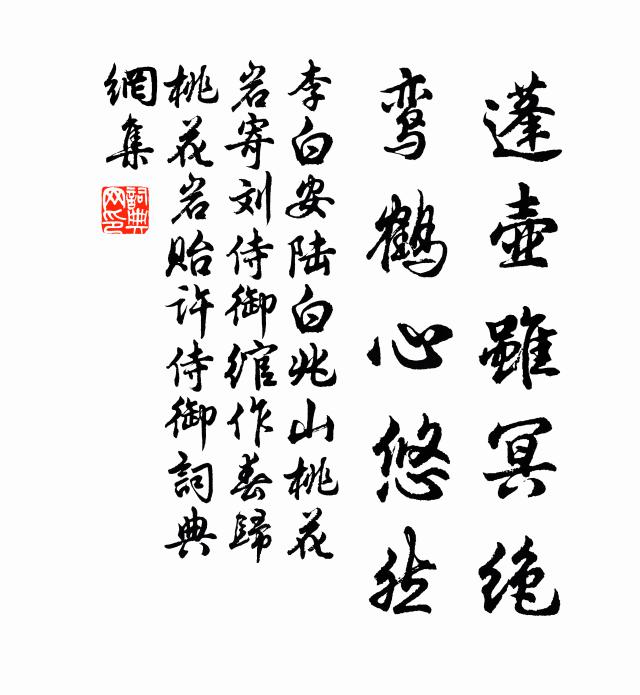 蓬壺雖冥绝
鸾鶴心悠然
李白安陆白兆山桃花
岩寄刘侍御绾作春歸
桃花岩貽许侍御詞典
網集
詞典网印